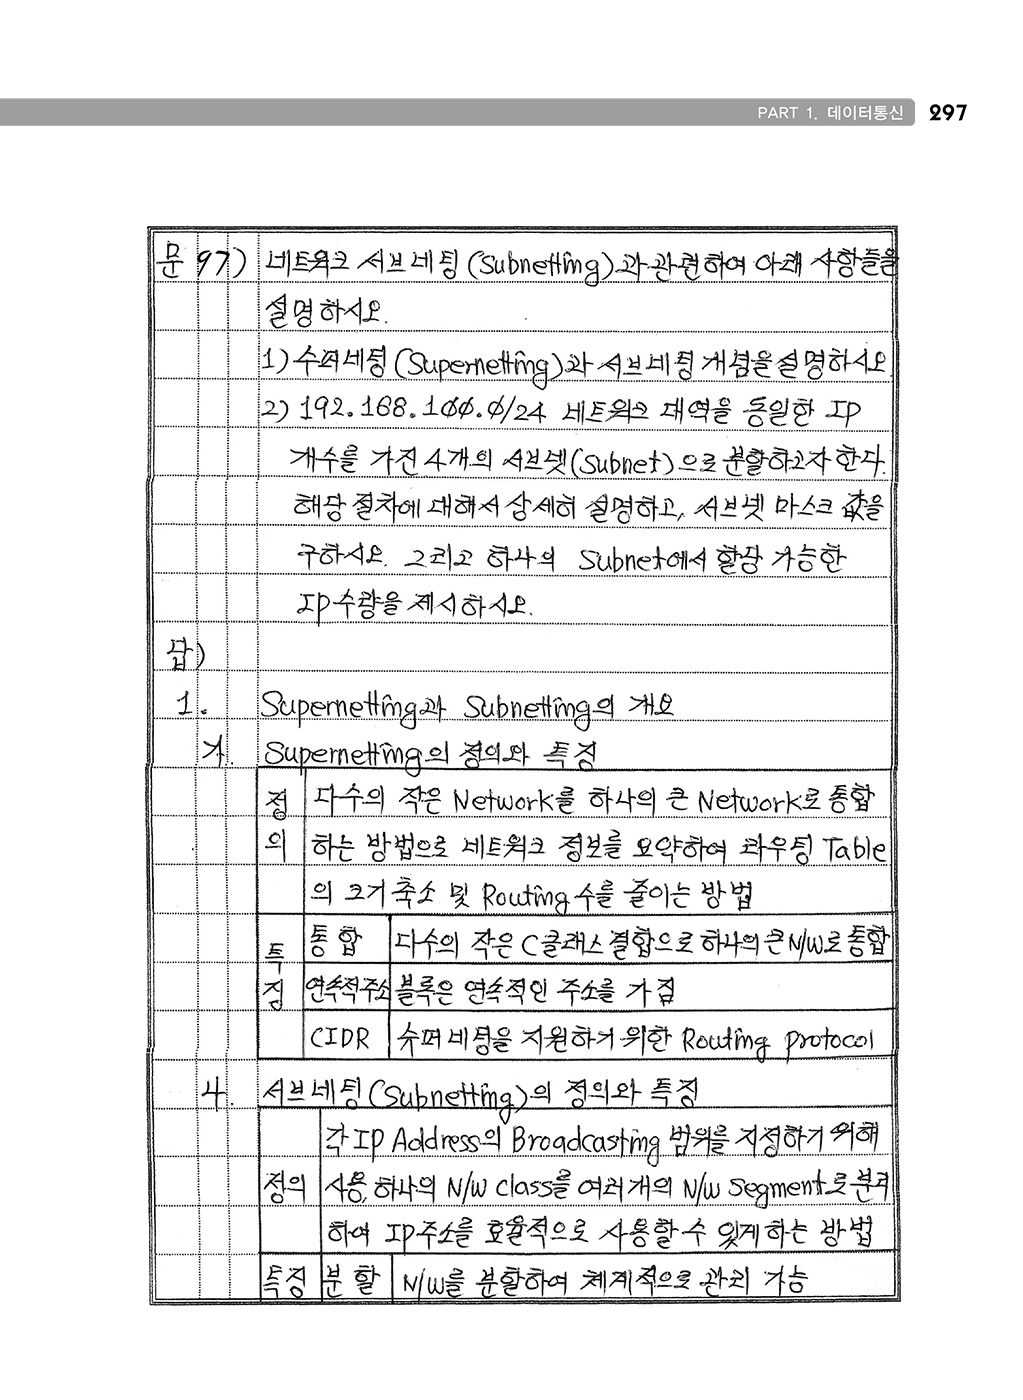 PART 1. 데이터통신 297
문 97) 네트워크 서브네팅(Subnetting)과 관련하여 아래 사항들을
설명하시오.
1) 수퍼네팅(Supernetting)과 서브네팅 개념을 설명하시오
2) 192.168.100.0/24 네트워크 대역을 동일한 IP
개수를 가진 4개의 서브넷(Subnet)으로 분할하고자 한다.
해당 절차에 대해서 상세히 설명하고, 서브넷 마스크 값을
구하시오. 그리고 하나의 Subnet에서 할당 가능한
IP수량을 제시하시오.
답)
1. Supernetting과 Subnetting의 개요
가. Supernetting의 정의와 특징
정의 다수의 작은 Network를 하나의 큰 Network로 통합
하는 방법으로 네트워크 정보를 요약하여 라우팅 Table
의 크기 축소 및 Routing 수를 줄이는 방법
특징 통합 다수의 작은 C클래스 결합으로 하나의 큰 N/W로 통합
연속적주소 블록은 연속적인 주소를 가짐
CIDR 수퍼네팅을 지원하기 위한 Routing protocol
나. 서브네팅(Subnetting)의 정의와 특징
각 IP Address의 Broadcasting 범위를 지정하기 위해
정의 사용, 하나의 N/W Class를 여러개의 N/W Segment로 분리
하여 IP주소를 효율적으로 사용할 수 있게 하는 방법
특징 분할 N/W를 분할하여 체계적으로 관리 가능